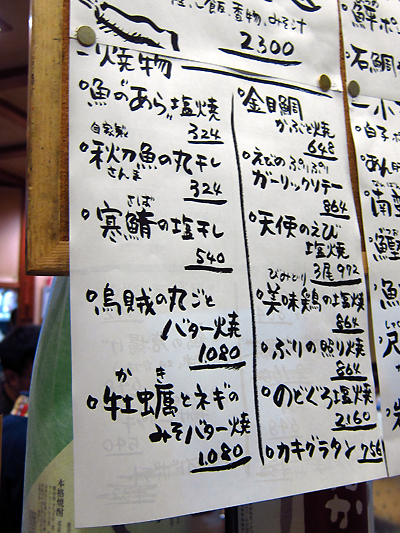 ご飯、香物、みそ汁
2300
一焼物
魚のあら塩焼
324
自家製
秋刀魚の丸干し
さんま
324
さば
寒鯖の塩干し
540
烏賊の丸ごと
バター焼
1,080
かき
牡蠣とネギの
みそバター焼
1,080
金目鯛
かぶと焼
648
えびのぷりぷり
ガーリックソテー
864
天使のえび
塩焼
3尾 972
びみどり
美味鶏の塩焼
864
ぶりの照り焼
864
のどぐろ塩焼
2,160
カキグラタン 756
鮮ポン
石鯛
一小
白子ポ
あん肝
南蛮
魚
本格焼酎